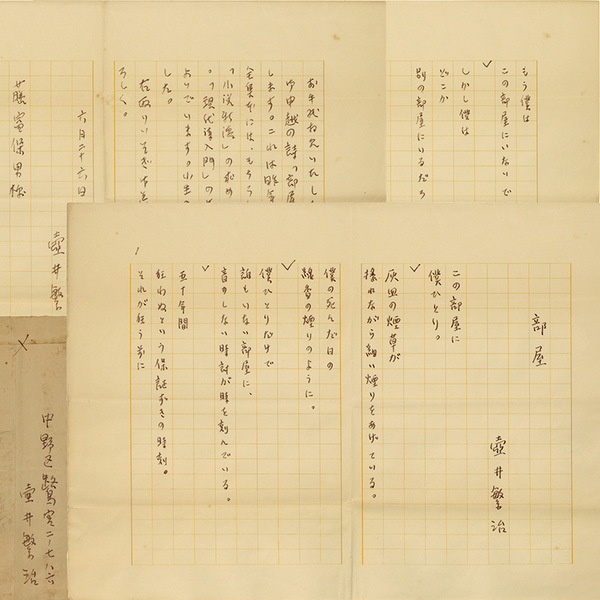 部屋
壺井繁治
この部屋に
僕ひとり。
灰皿の煙草が
揺れながら細い煙りをあげている。
僕の死んだ日の
線香の煙りのように。
僕ひとりだけで
誰もいない部屋に、
音のしない時計が時を刻んでいる。
五十年間
狂わぬという保証ずきの時刻。
それが狂う前に
1
もう僕は
この部屋にいないで
しかし僕は
どこか
別の部屋にいるだろ
お手紙拝見いたし
御申越の詩「部屋
します。これは昨年
全集本には、もちろ
した。
右取りいそぎ
ろしく。
六月二十六日
壺井繁
藤富保男様
中野区鷺宮二ノ七八六
壺井繁治